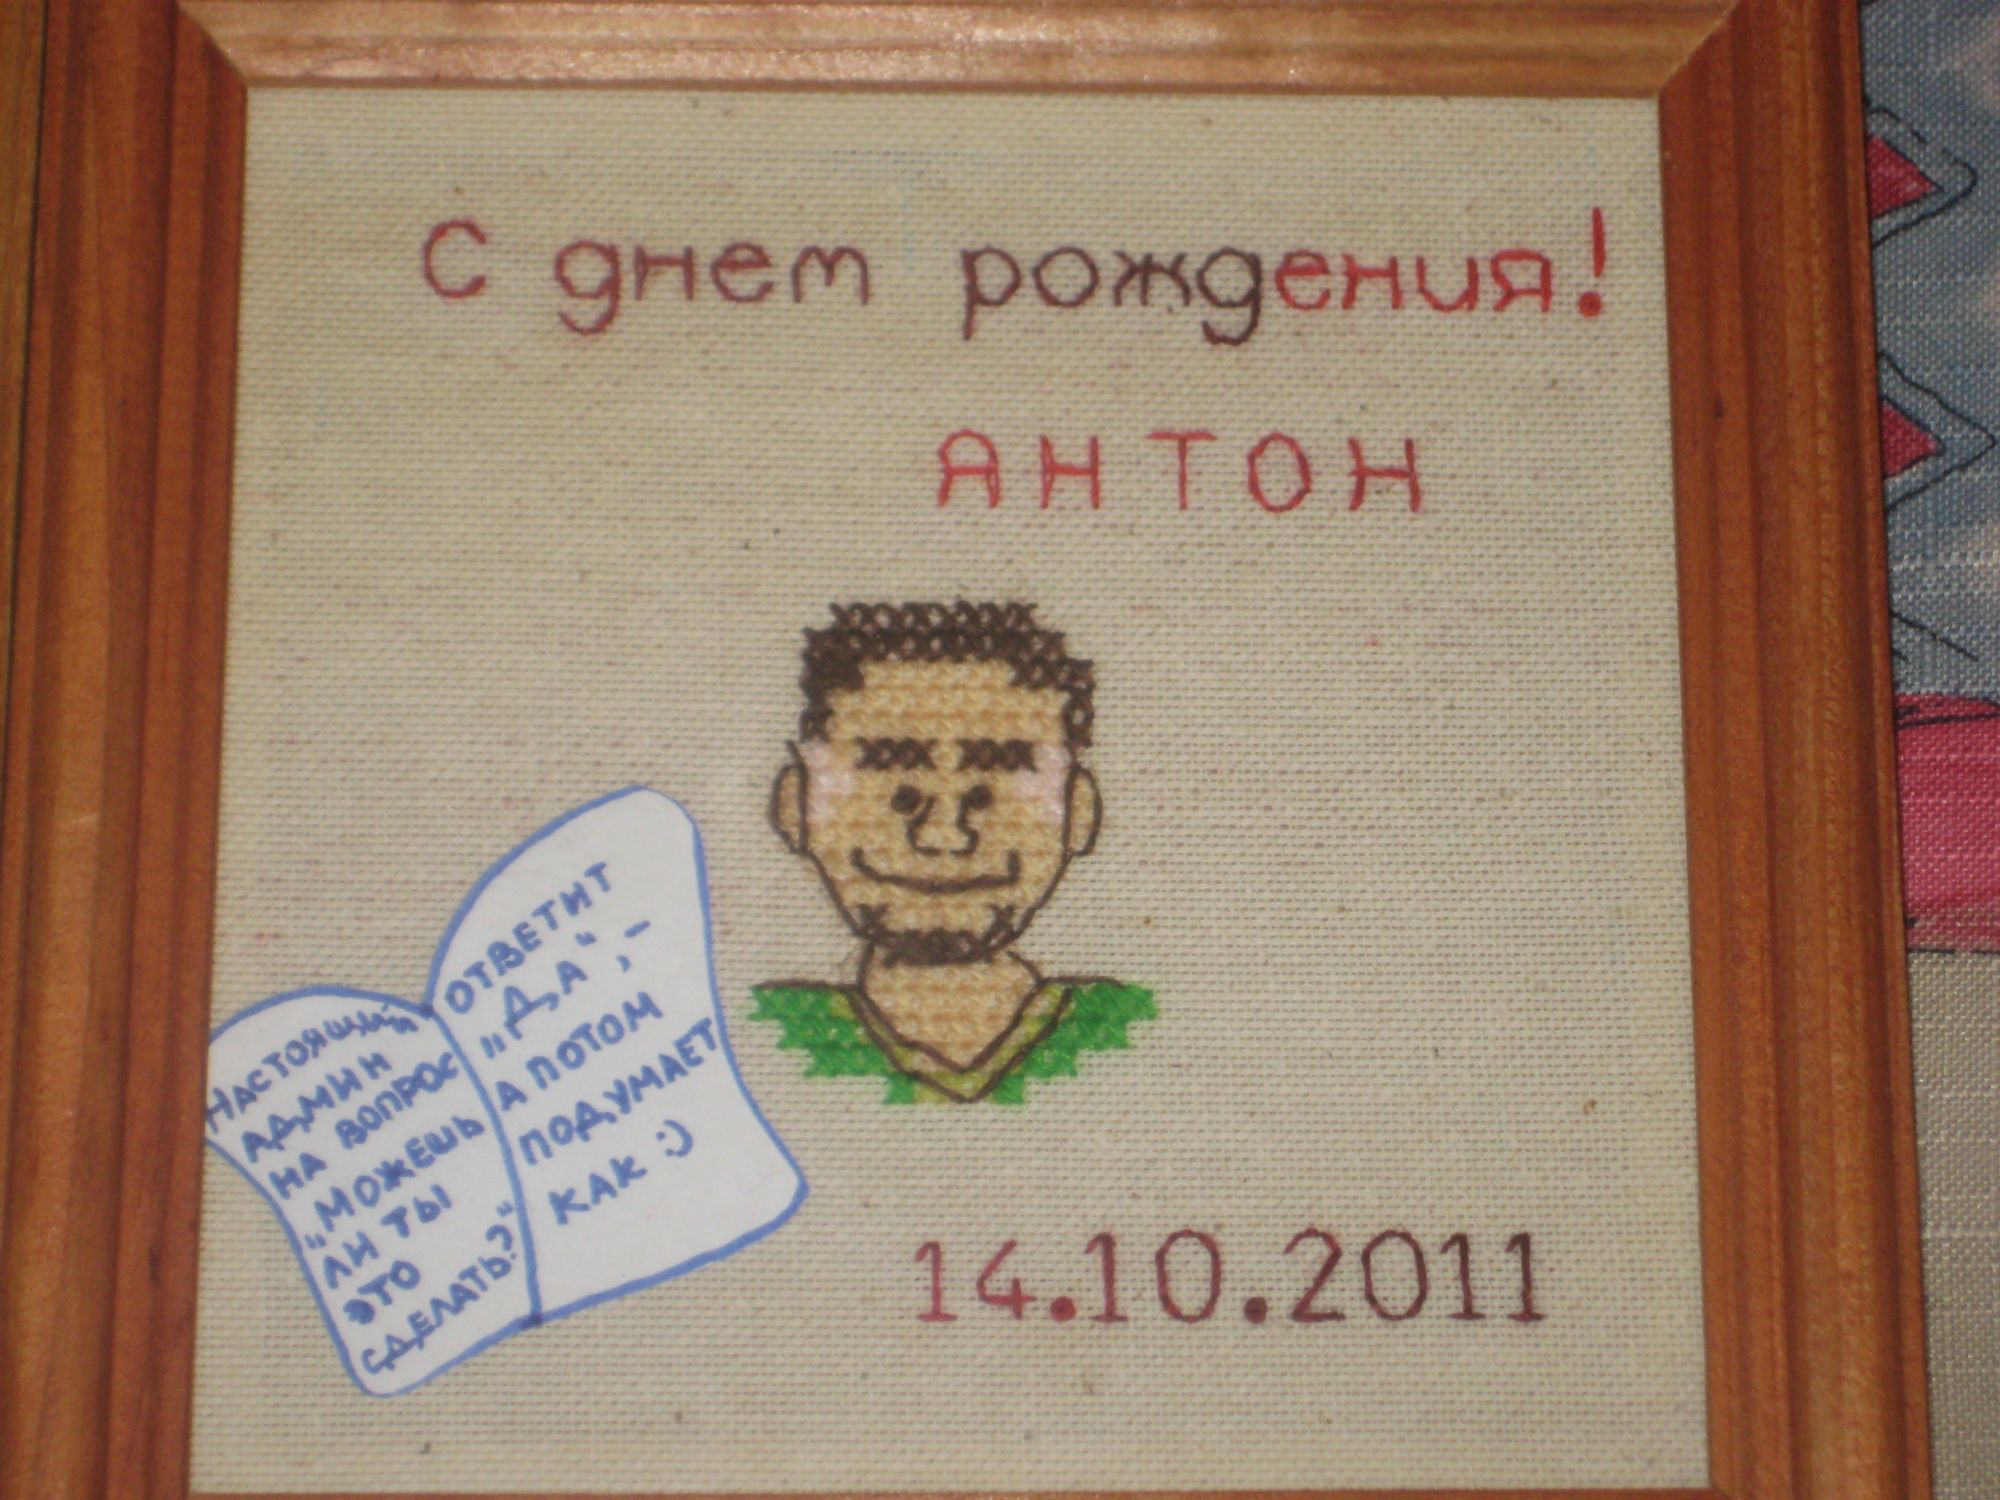 С днем рождения!
АНТОН
НАСТОЯЩИЙ
АДМИН
НА ВОПРОС
„МОЖЕШЬ
ЛИ ТЫ
ЭТО
СДЕЛАТЬ?“
ОТВЕТИТ
„ДА“, –
А ПОТОМ
ПОДУМАЕТ
КАК :)
14.10.2011